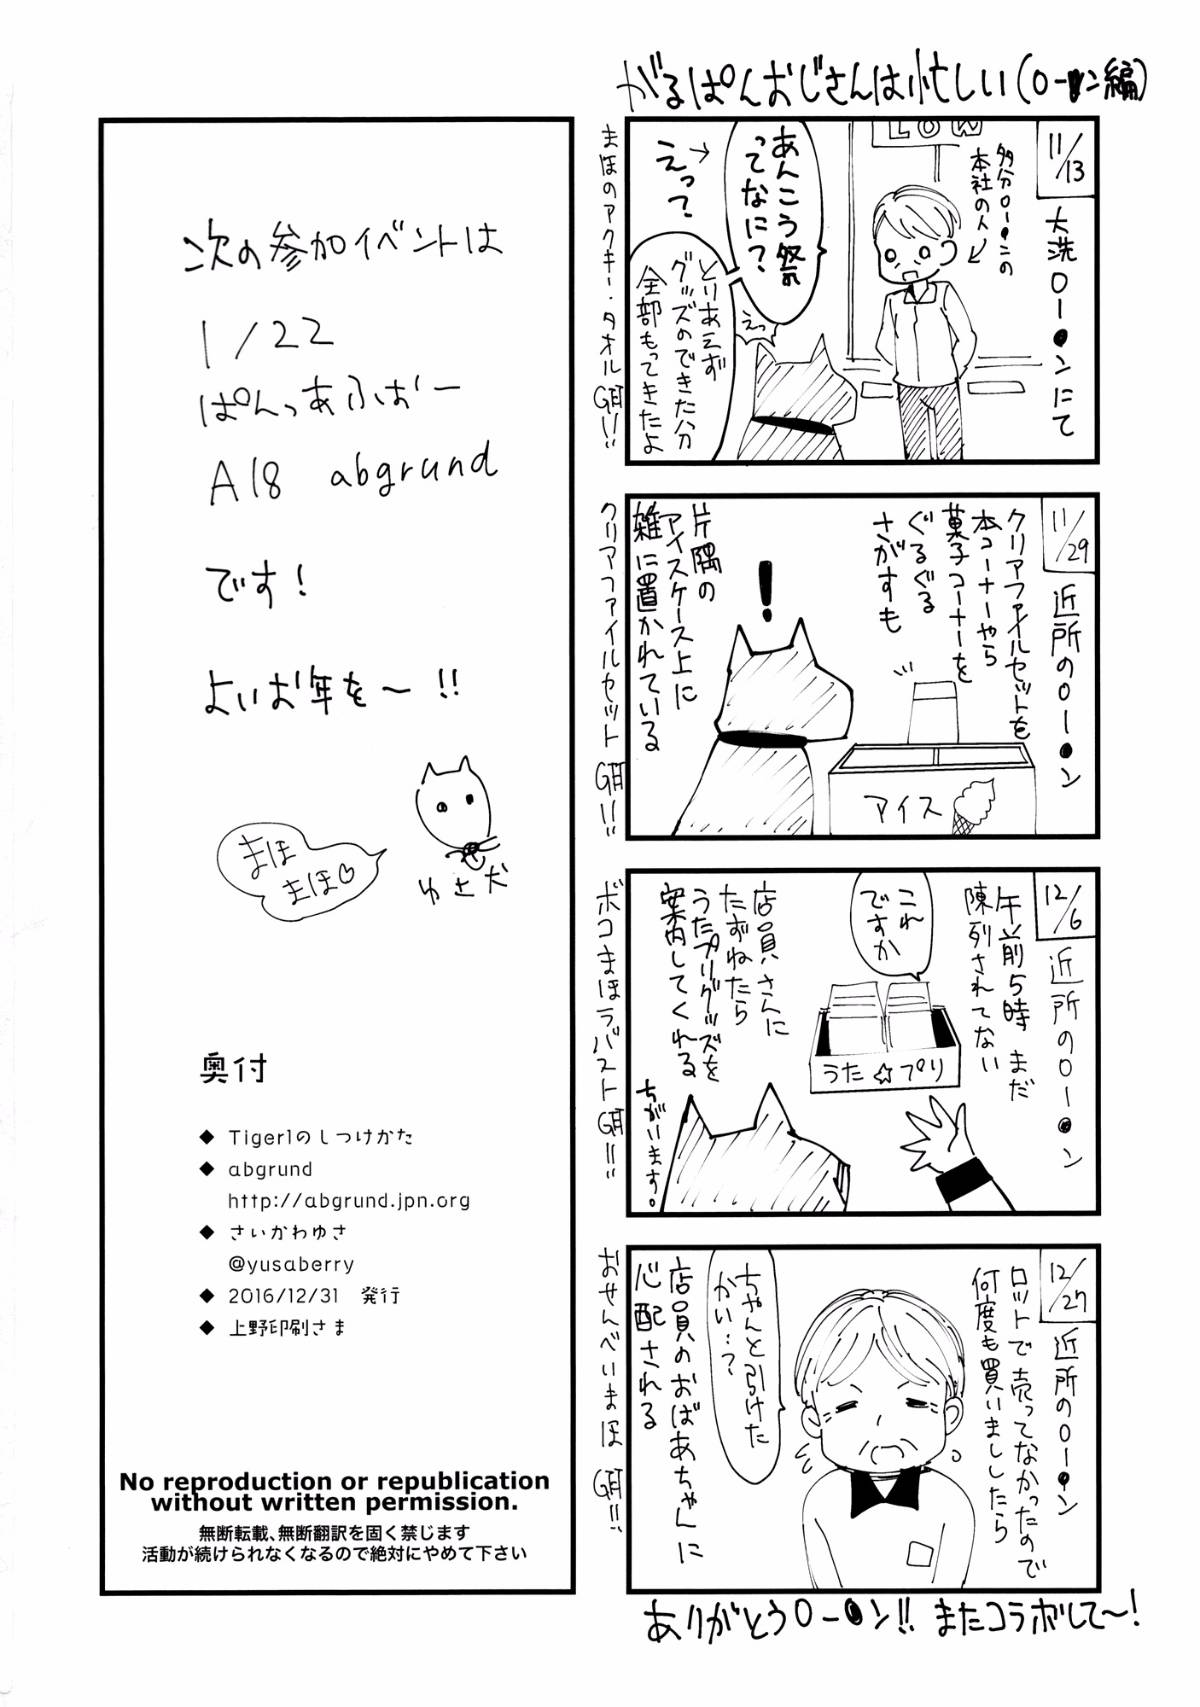 がるぱんおじさんは忙しい(ロー●ン編)
11/13
大洗ロー●ンにて
多分ロー●ンの
本社の人
あんこう祭
ってなに?
えって?
とりあえず
グッズのできた分
全部もってきたよ
えっ
まほのアクキー・タオルGET!!
11/29
近所のロー●ン
クリアファイルセットを
本コーナーやら
菓子コーナーを
ぐるぐる
さがすも
片隅の
アイスケース上に
雑に置かれている
!
アイス
クリアファイルセットGET!!!
12/6
近所のロー●ン
午前5時 まだ
陳列されてない
これ
ですか
店員さんに
たずねたら
うたプリグッズを
案内してくれる
うた☆プリ
ちがいます。
ボコまほラバストGET!!!
12/27
近所のロー●ン
ロットで売ってなかったので
何度も買いましたら
ちゃんと引けた
かい…?
店員のおばあちゃんに
心配される
おせんべいまほ GET!!!
ありがとうロー●ン!! またコラボして〜!
次の参加イベントは
1/22
ぱんっあふぉー
A18 abgrund
です!
よいお年を〜!!
まほ
まほ♡
ゆさ犬
奥付
◆ Tiger1のしつけかた
◆ abgrund
http://abgrund.jpn.org
◆ さいかわゆさ
@yusaberry
◆ 2016/12/31 発行
◆ 上野印刷さま
No reproduction or republication
without written permission.
無断転載、無断翻訳を固く禁じます
活動が続けられなくなるので絶対にやめて下さい